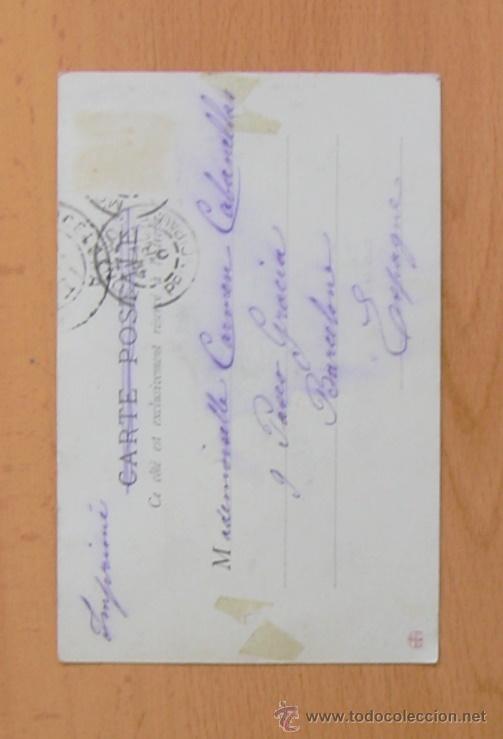 Imprimé
CARTE POSTALE
Ce côté est exclusivement réservé à
Mademoiselle Carmen Cabanellas
9 Paseo Gracia
Barcelone
Espagne
www.todocoleccion.net